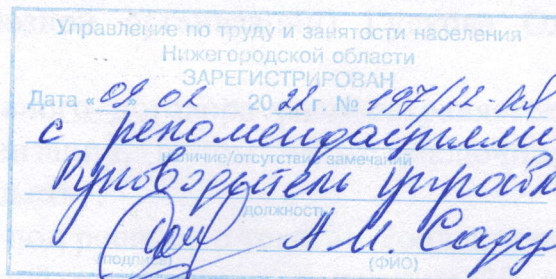 Управление по труду и занятости населения
Нижегородской области
ЗАРЕГИСТРИРОВАН
Дата «09» 02 2022 г. № 197/22-
с рекомендациями
наличие/отсутствие замечаний
Руководитель
должность
А.И. Саду
(подпись) (ФИО)